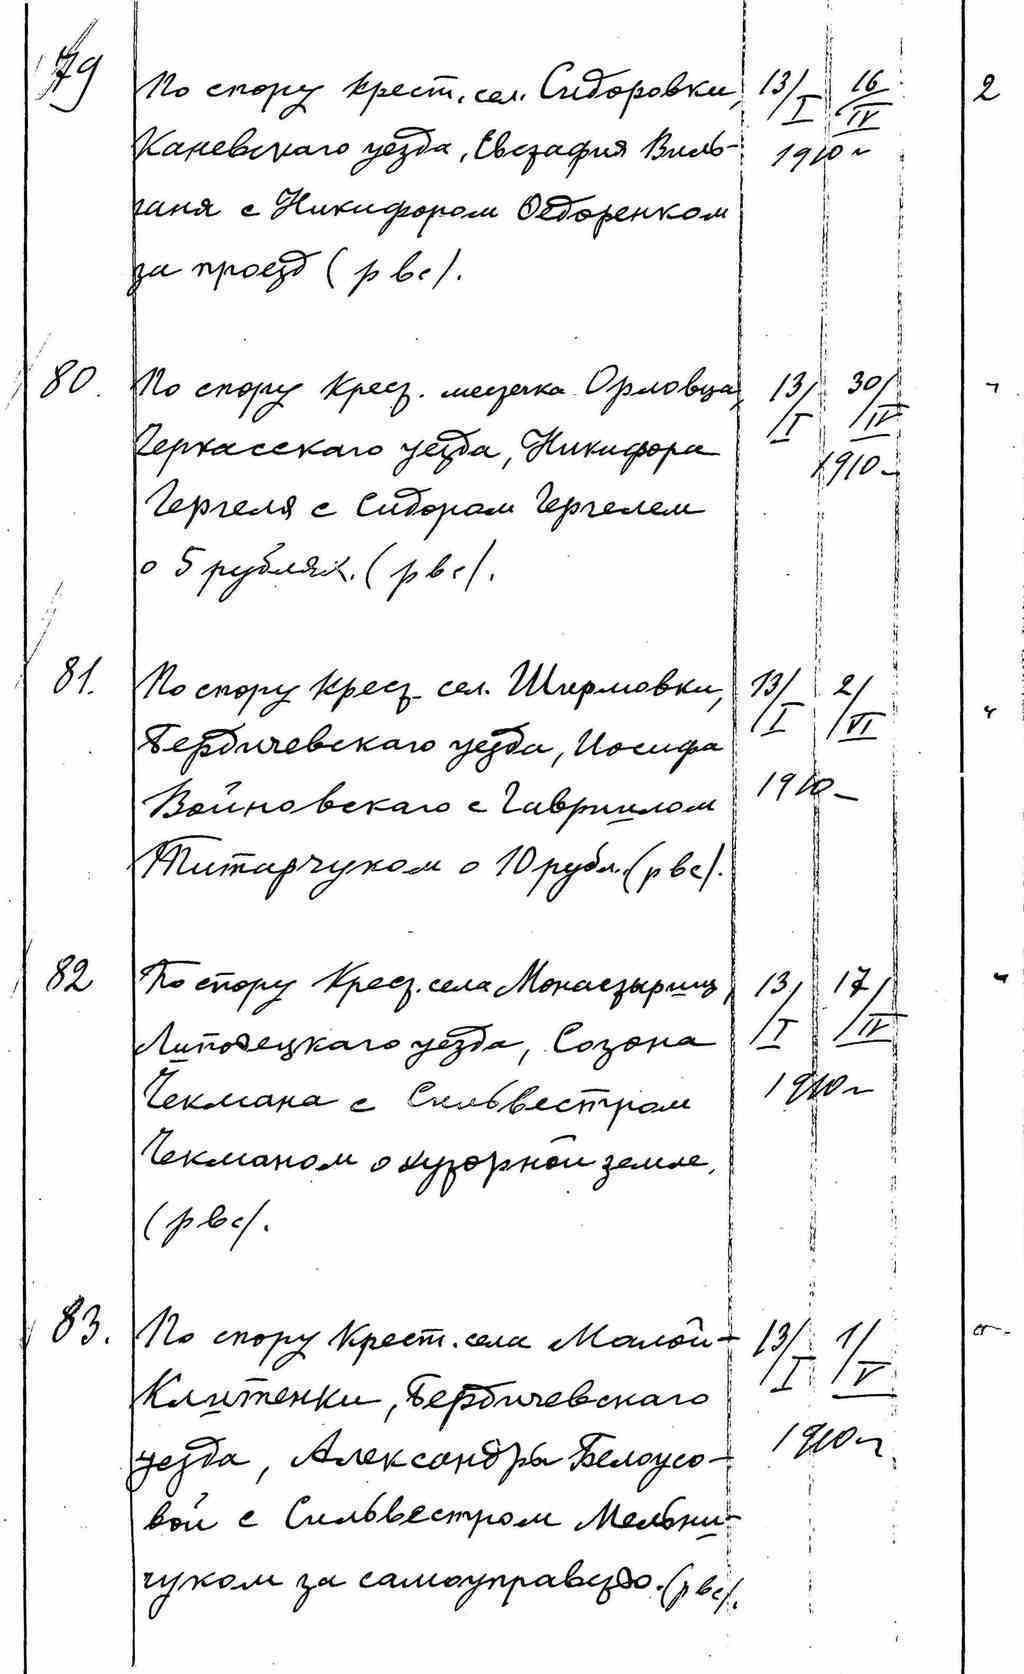 79 По спору крест. сел. Сидоровки, 13/I 16/IV 2
Каневскаго уезда, Евстафия Виль- 1910 г
ганя с Никифором Федоренком
за проезд (рвс).
80. По спору Крест. местечка Орловца, 13/I 30/IV "
Черкасскаго уезда, Никифора 1910
Гергеля с Сидорам Гергелем
о 5 рублях. (рвс).
81. По спору Крест. сел. Ширмовки, 13/I 2/VI "
Бердичевскаго уезда, Иосифа
Войновскаго с Гавриилом 1910
Титарчуком о 10 рубл. (рвс).
82 По спору Крест. села Монастырищ, 13/I 17/IV "
Липовецкаго уезда, Созона
Чекмана с Сильвестром 1910 г
Чекманом о хуторной земле.
(рвс).
83. По спору Крест. села Малой- 13/I 1/V
Клитенки, Бердичевскаго
уезда, Александры Белоусо- 1910 г
вой с Сильвестром Мельни-
чуком за самоуправство. (рвс).